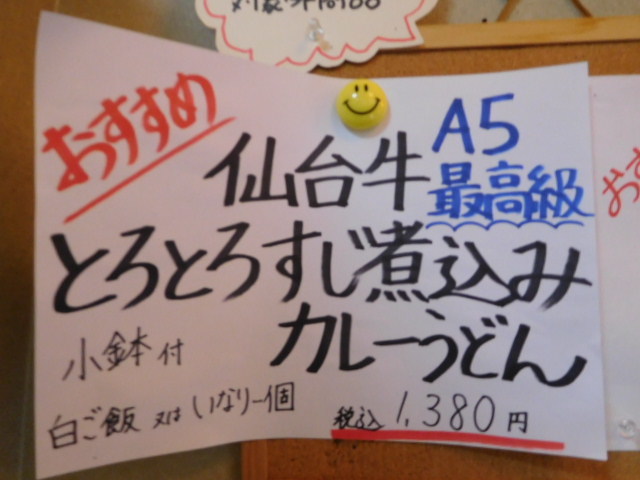 おすすめ
仙台牛 A5
最高級
とろとろすじ煮込み
カレーうどん
小鉢付
白ご飯 又は いなり一個
税込 1,380円